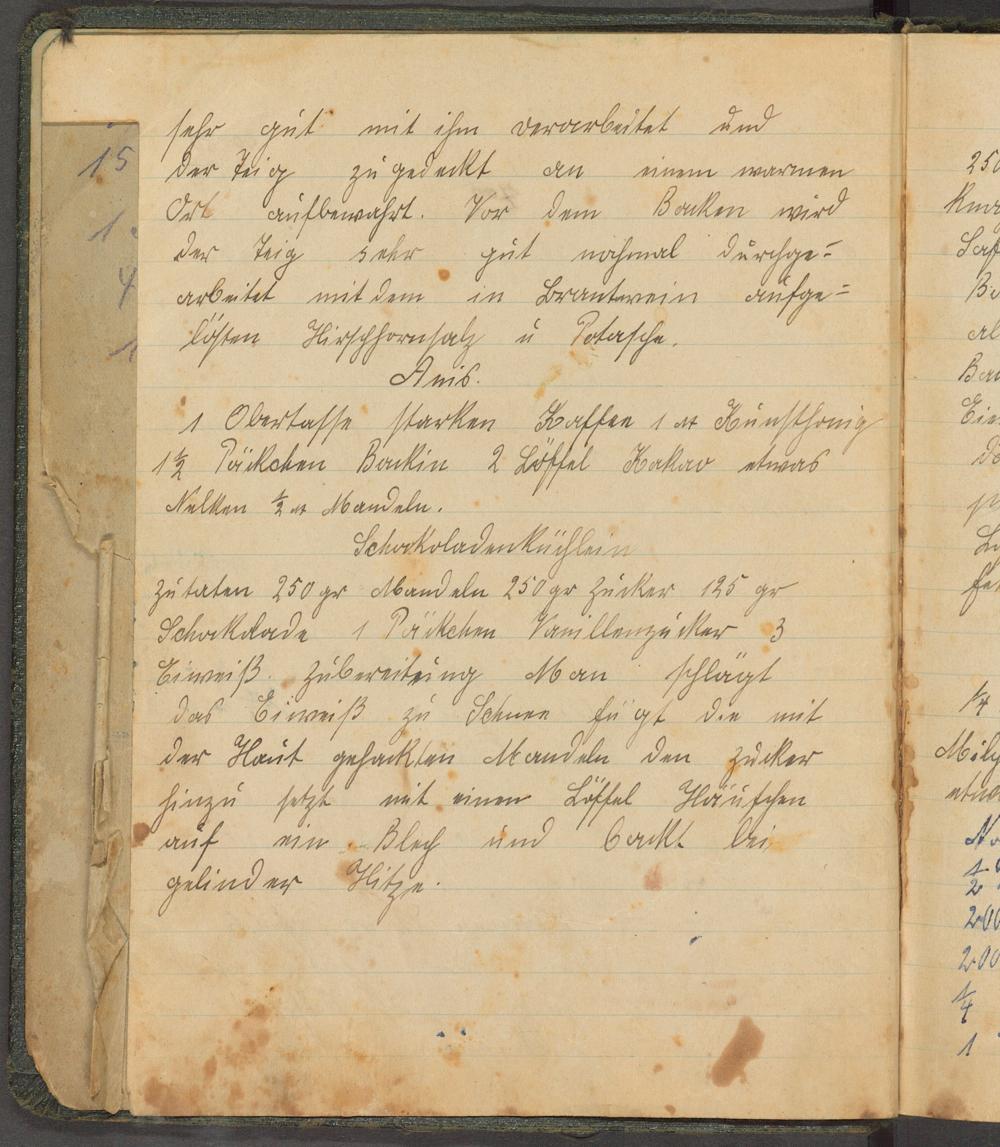 sehr gut mit ihm verarbeitet und
der Teig zugedeckt an einem warmen
Ort aufbewahrt. Vor dem Backen wird
der Teig sehr gut nochmal durchge=
arbeitet mit dem in Brantwein aufge=
lösten Hirschhornsalz u Potasche.
Anis.
1 Obertasse starken Kaffee 1 ℔ Kunsthonig
1½ Päckchen Backin 2 Löffel Kakao etwas
Nelken ½ ℔ Mandeln.
Schokoladenküchlein
Zutaten 250 gr Mandeln 250 gr Zucker 125 gr
Schokolade 1 Päckchen Vanillenzucker 3
Eiweiß. Zubereitung Man schlägt
das Eiweiß zu Schnee fügt die mit
der Haut gehackten Mandeln den Zucker
hinzu setzt mit einen Löffel Häufchen
auf ein Blech und backt bei
gelinder Hitze.
15
1
4
1
250
Saf
Ba
al
Bac
Eie
¼
Milch
etwa
200
200
¼
1